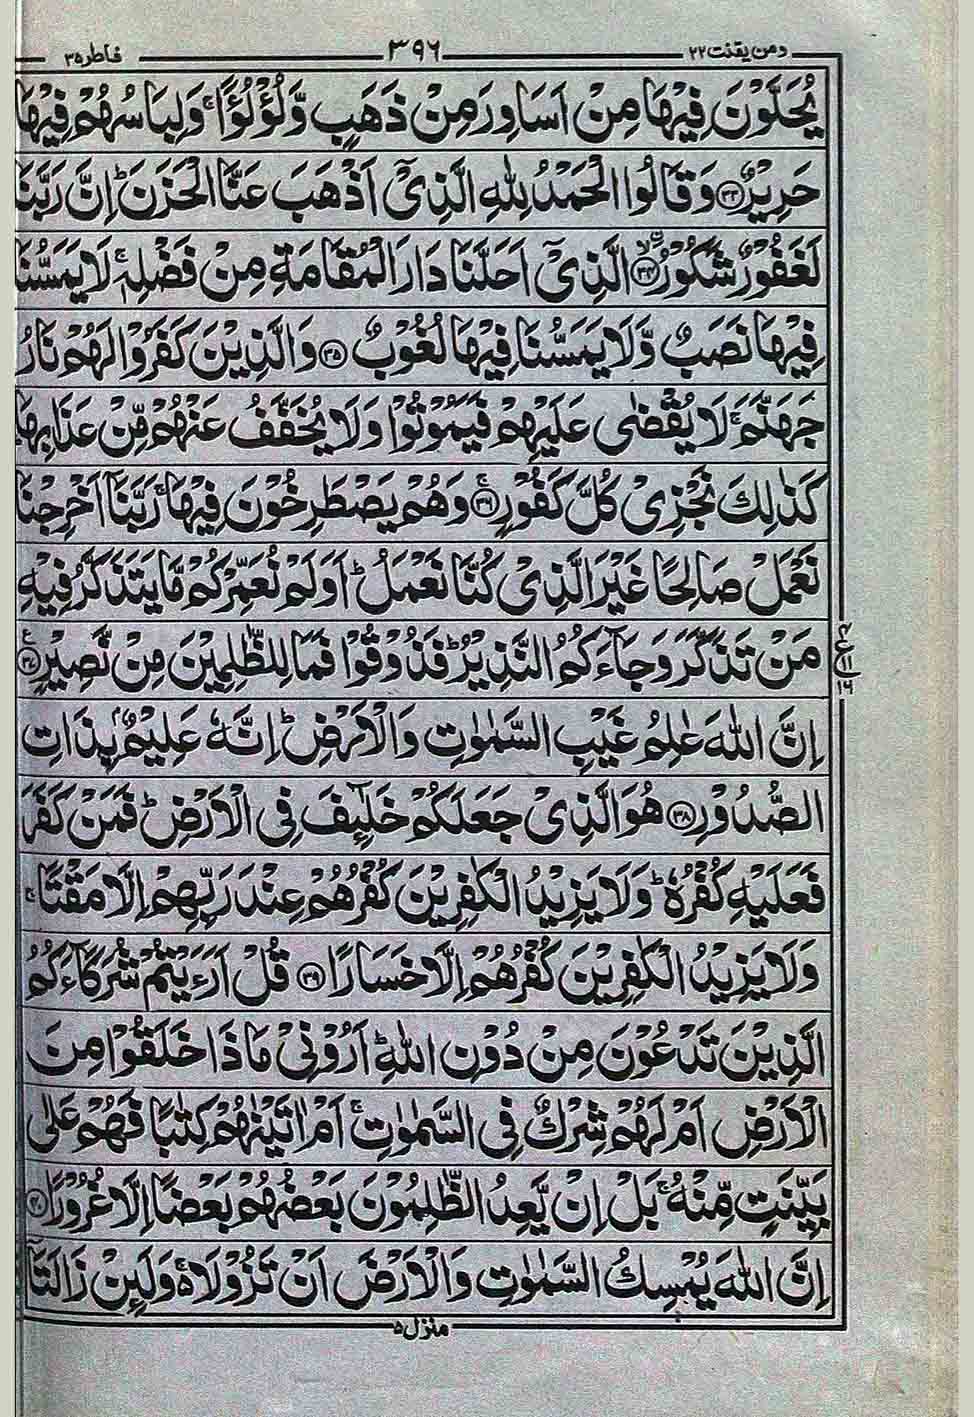 ومن يقنت ٢٢ ٣٩٦ فاطر ٣٥
يُحَلَّوْنَ فِيْهَا مِنْ اَسَاوِرَ مِنْ ذَهَبٍ وَّلُؤْلُؤًا ۚ وَلِبَاسُهُمْ فِيْهَا
حَرِيْرٌ ﴿٣٣﴾ وَقَالُوا الْحَمْدُ لِلّٰهِ الَّذِیْۤ اَذْهَبَ عَنَّا الْحَزَنَ ؕ اِنَّ رَبَّنَا
لَغَفُوْرٌ شَكُوْرُ ۙ﴿٣٤﴾ الَّذِیْۤ اَحَلَّنَا دَارَ الْمُقَامَةِ مِنْ فَضْلِهٖ ۚ لَا یَمَسُّنَا
فِیْهَا نَصَبٌ وَّلَا یَمَسُّنَا فِیْهَا لُغُوْبٌ ﴿٣٥﴾ وَالَّذِیْنَ كَفَرُوْا لَهُمْ نَارُ
جَهَنَّمَ ۚ لَا یُقْضٰی عَلَیْهِمْ فَیَمُوْتُوْا وَلَا یُخَفَّفُ عَنْهُمْ مِّنْ عَذَابِهَا
كَذٰلِكَ نَجْزِیْ كُلَّ كَفُوْرٍ ۚ﴿٣٦﴾ وَهُمْ یَصْطَرِخُوْنَ فِیْهَا ۚ رَبَّنَاۤ اَخْرِجْنَا
نَعْمَلْ صَالِحًا غَیْرَ الَّذِیْ كُنَّا نَعْمَلُ ؕ اَوَلَمْ نُعَمِّرْكُمْ مَّا یَتَذَكَّرُ فِیْهِ
مَنْ تَذَكَّرَ وَجَآءَكُمُ النَّذِیْرُ ؕ فَذُوْقُوْا فَمَا لِلظّٰلِمِیْنَ مِنْ نَّصِیْرٍ ﴿٣٧﴾
٤ ع ١١ ١٦
اِنَّ اللّٰهَ عٰلِمُ غَیْبِ السَّمٰوٰتِ وَالْاَرْضِ ؕ اِنَّهٗ عَلِیْمٌۢ بِذَاتِ
الصُّدُوْرِ ﴿٣٨﴾ هُوَ الَّذِیْ جَعَلَكُمْ خَلٰٓئِفَ فِی الْاَرْضِ ؕ فَمَنْ كَفَرَ
فَعَلَیْهِ كُفْرُهٗ ؕ وَلَا یَزِیْدُ الْكٰفِرِیْنَ كُفْرُهُمْ عِنْدَ رَبِّهِمْ اِلَّا مَقْتًا ۚ
وَلَا یَزِیْدُ الْكٰفِرِیْنَ كُفْرُهُمْ اِلَّا خَسَارًا ﴿٣٩﴾ قُلْ اَرَءَیْتُمْ شُرَكَآءَكُمُ
الَّذِیْنَ تَدْعُوْنَ مِنْ دُوْنِ اللّٰهِ ؕ اَرُوْنِیْ مَاذَا خَلَقُوْا مِنَ
الْاَرْضِ اَمْ لَهُمْ شِرْكٌ فِی السَّمٰوٰتِ ۚ اَمْ اٰتَیْنٰهُمْ كِتٰبًا فَهُمْ عَلٰی
بَیِّنَتٍ مِّنْهُ ۚ بَلْ اِنْ یَّعِدُ الظّٰلِمُوْنَ بَعْضُهُمْ بَعْضًا اِلَّا غُرُوْرًا ﴿٤٠﴾
اِنَّ اللّٰهَ یُمْسِكُ السَّمٰوٰتِ وَالْاَرْضَ اَنْ تَزُوْلَا ۚ۬ وَلَىِٕنْ زَالَتَاۤ
منزل ٥